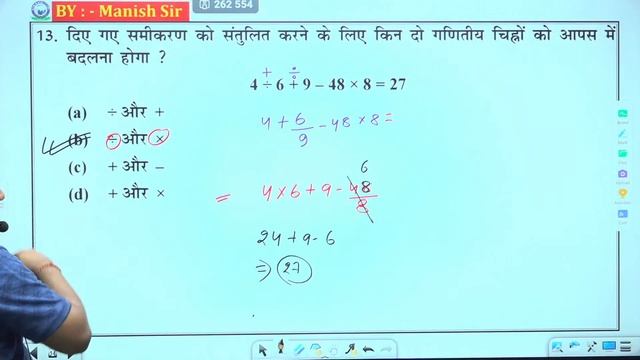 BY : - Manish Sir
262 554
13. दिए गए समीकरण को संतुलित करने के लिए किन दो गणितीय चिह्नों को आपस में
बदलना होगा ?
+ ÷
4 ÷ 6 + 9 – 48 × 8 = 27
(a) ÷ और +
4 + 6/9 - 48 × 8 =
(b) ÷ और ×
(c) + और –
6
(d) + और ×
= 4 × 6 + 9 - 48/8
24 + 9 - 6
⇒ 27